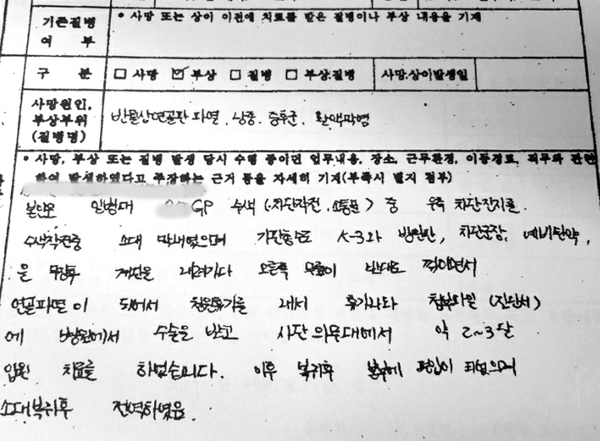 기존질병 • 사망 또는 상이 이전에 치료를 받은 질병이나 부상 내용을 기재
여 부
구 분 □ 사망 ☑ 부상 □ 질병 □ 부상,질병 사망,상이발생일
사망원인,
부상부위 반월상연골판 파열, 낭종, 증후군, 활액막염
(질병명)
• 사망, 부상 또는 질병 발생 당시 수행 중이던 업무내용, 장소, 근무환경, 이동경로, 직무와 관련
하여 발생하였다고 주장하는 근거 등을 자세히 기재(부족시 별지 첨부)
본인은 일병때 GP 수색 (차단작전, 소통문) 중 우측 차단진지를
수색작전중 소대 막내였으며 K-3와 방탄판, 차단군장, 예비탄약,
을 무장후 계단을 내려가다 오른쪽 무릎이 반대로 꺾이면서
연골파열이 되어서 청원휴가를 내서 휴가나와 첨부파일 (진단서)
에 병원에서 수술을 받고 사단 의무대에서 약 2~3달
입원 치료를 하였습니다. 이후 복귀후 투입이 되었으며
소대복귀후 전역하였음